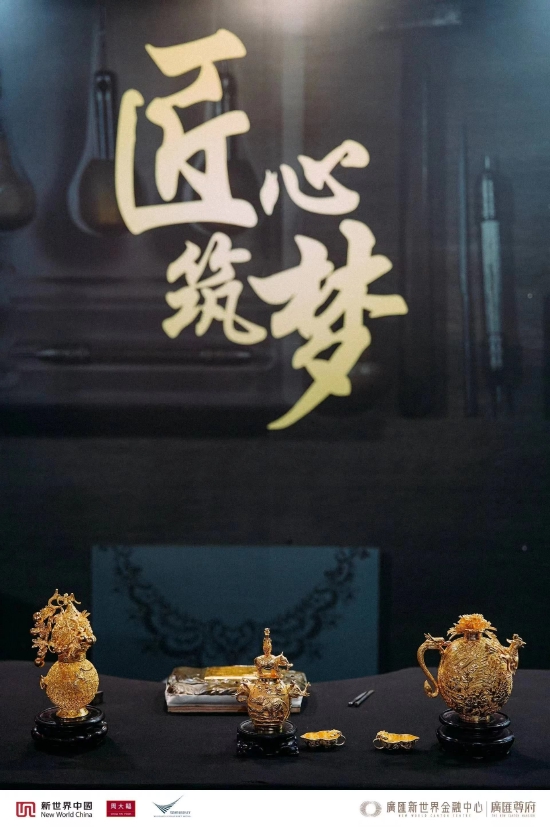 匠心
筑梦
新世界中國
New World China
周大福
廣匯新世界金融中心
NEW WORLD CANTON CENTRE
廣匯尊府